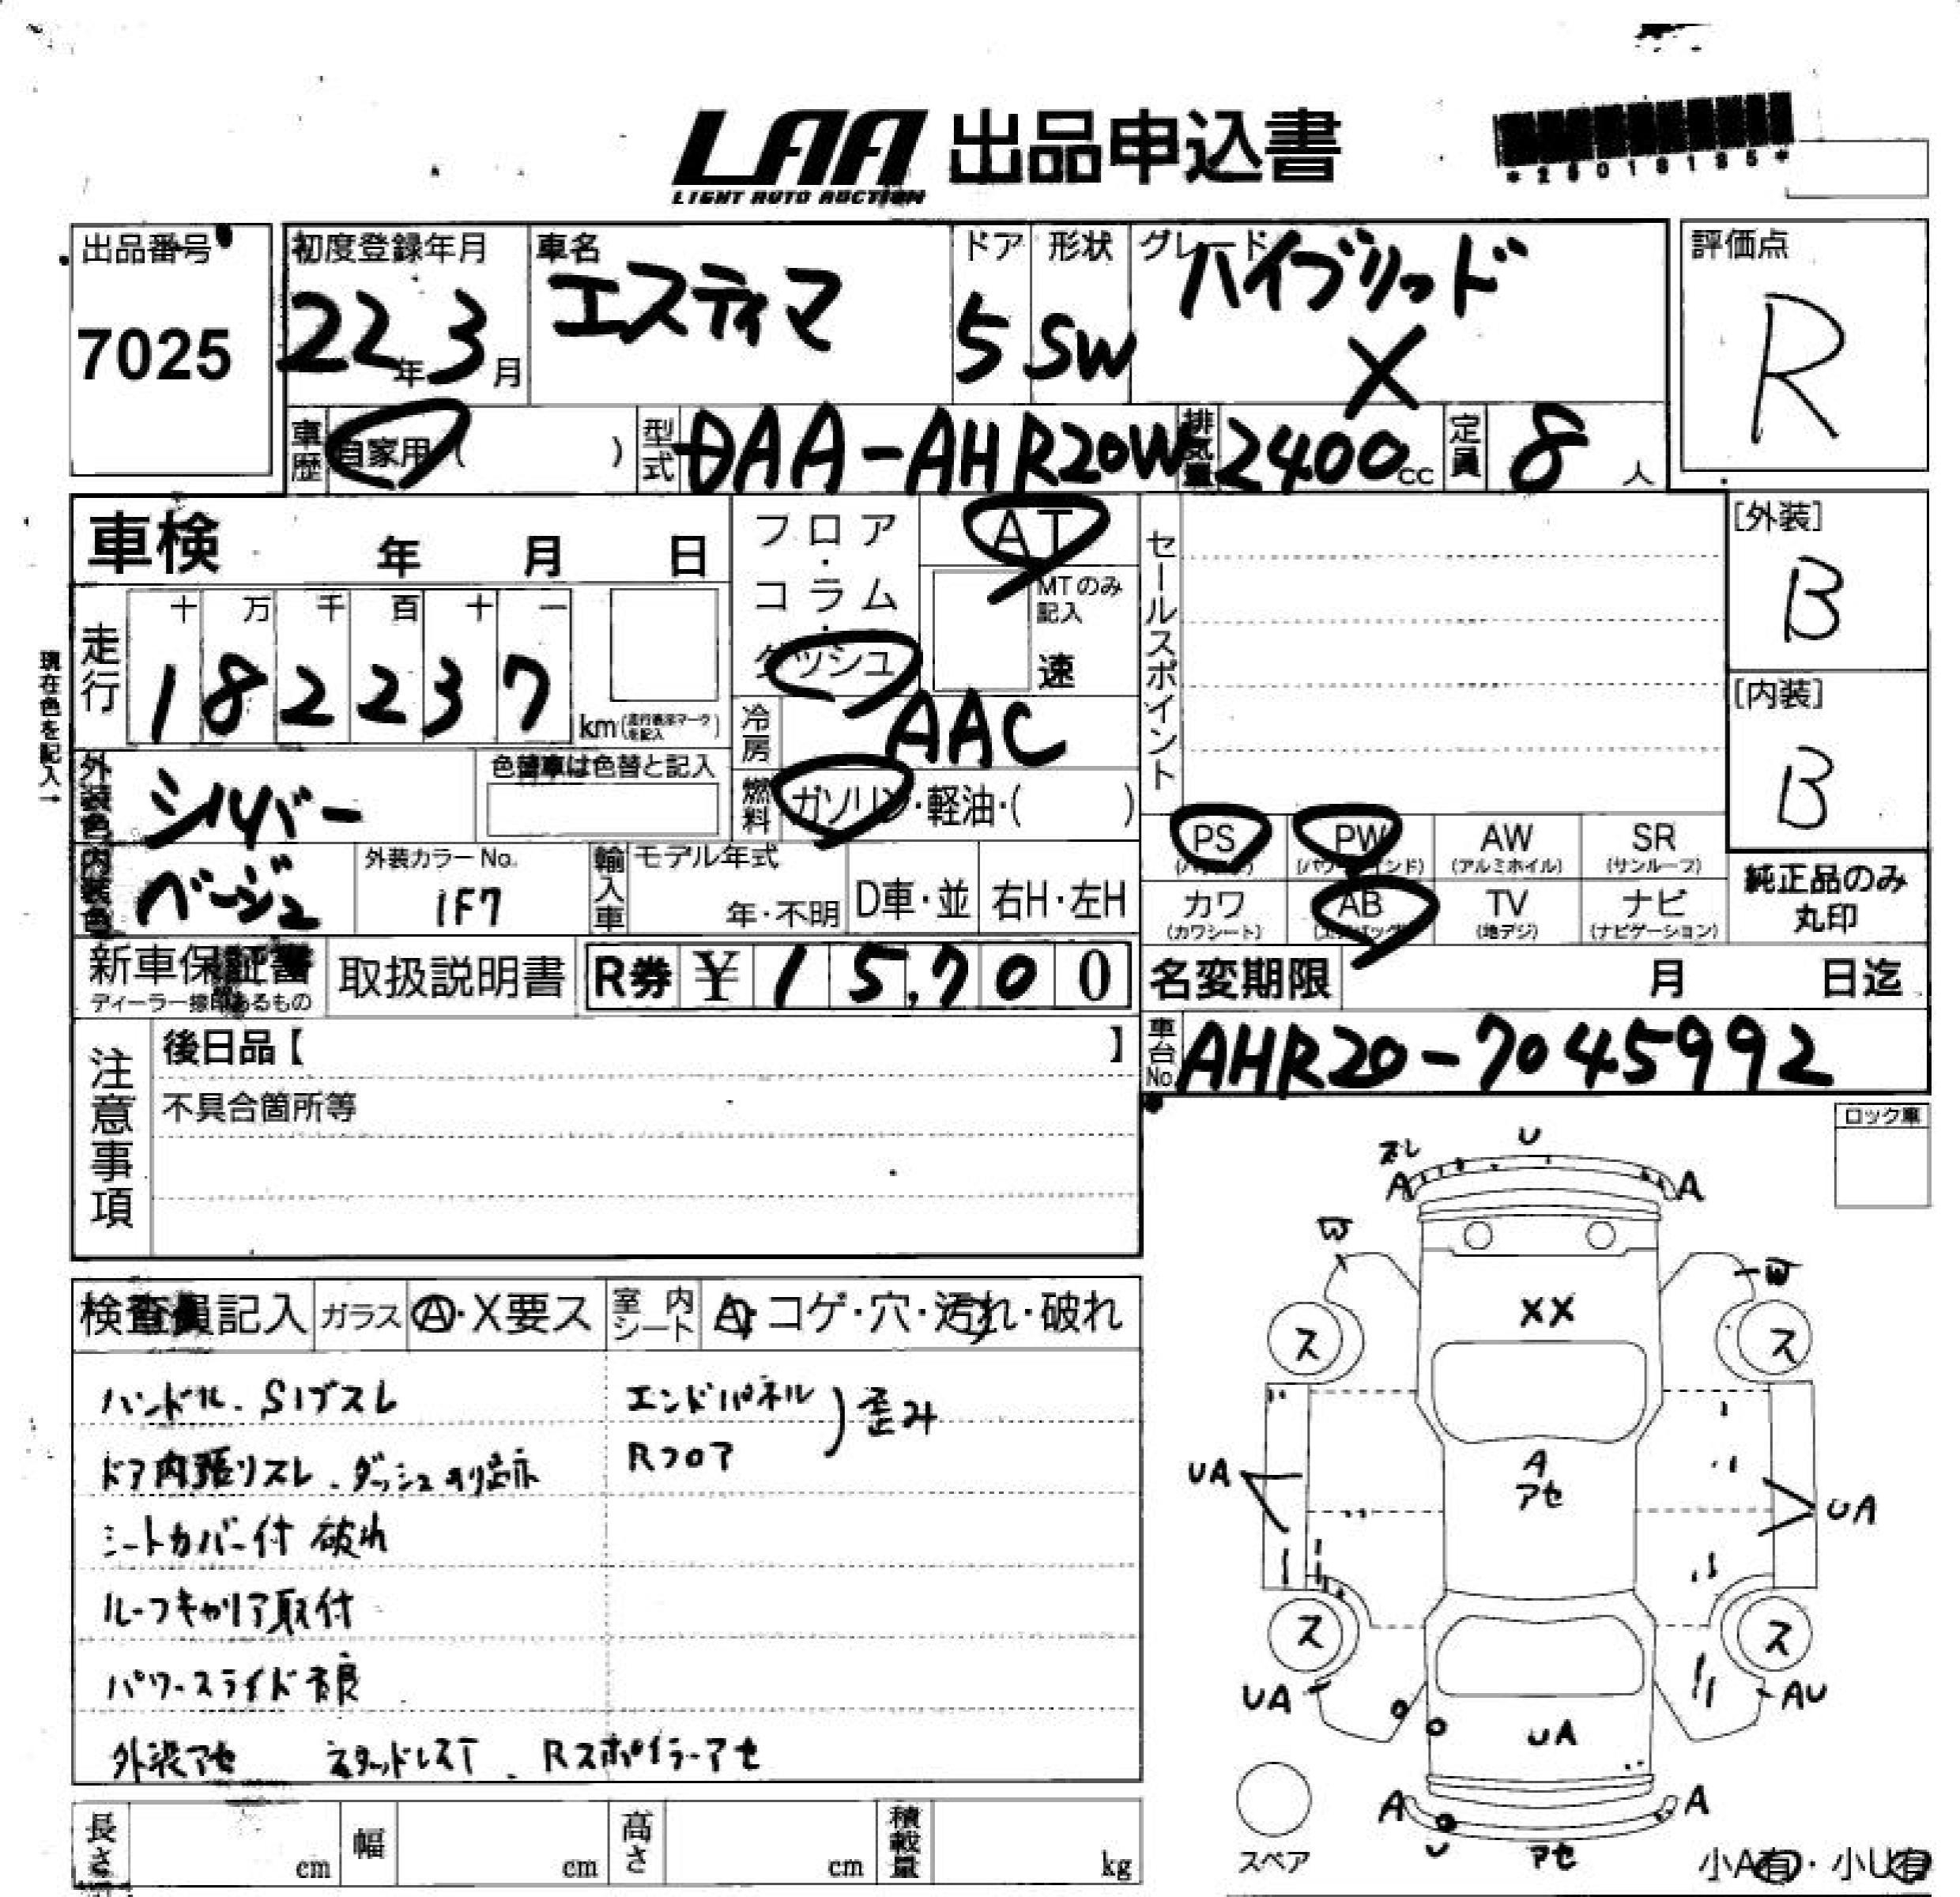 LAA 出品申込書
LIGHT AUTO AUCTION
*26018185*
出品番号
7025
初度登録年月
22年3月
車名
エスティマ
ドア
5
形状
SW
グレード
ハイブリッド
X
評価点
R
車歴
自家用 ( )
型式
DAA-AHR20W
排気量
2400cc
定員
8人
車検 年 月 日
フロア・コラム・ダッシュ
AT
MTのみ記入
速
セールスポイント
[外装]
B
[内装]
B
現在色を記入→
走行
十 万 千 百 十 一
1 8 2 2 3 7
km(走行表示マークを記入)
冷房
AAC
燃料
ガソリン・軽油・( )
外装色
シルバー
色替車は色替と記入
内装色
ベージュ
外装カラーNo.
1F7
輸入車
モデル年式
年・不明
D車・並
右H・左H
PS
PW
AW
(アルミホイル)
SR
(サンルーフ)
カワ
(カワシート)
AB
TV
(地デジ)
ナビ
(ナビゲーション)
純正品のみ
丸印
新車保証書
取扱説明書
R券 ¥ 15,700
名変期限 月 日迄
車台No.
AHR20-7045992
注意事項
後日品【 】
不具合箇所等
ロック車
検査員記入
ガラス
A・X要ス
室内シート
A・コゲ・穴・汚れ・破れ
ハンドル、S1ブスレ
ドア内張リスレ、ダッシュのり跡
シートカバー付 破れ
ルーフキャリア取付
パワースライド不良
外装アセ スタッドレスT、Rスポイラーアセ
エンドパネル
Rフロア
)歪み
ズレ
U
A
A
W
W
XX
ス
ス
UA
A
アセ
UA
ス
ス
UA
AU
UA
A
A
U
アセ
スペア
小A有・小U有
長さ cm
幅 cm
高さ cm
積載量 kg